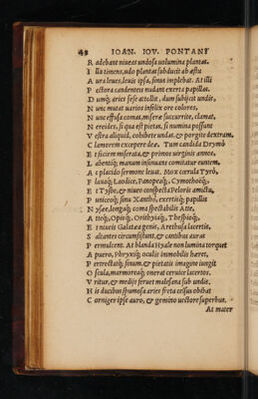 48 IOAN. IOV. PONTANI
R adebant niueas undosa uolumina plantas.
I lla timens, udo plantas subducit ab æstu
A ura leues, leuis ipsa, sinus implebat. At illi
P ectora candenteis nudant exerta papillas.
D umq́; aries sese attollit, dum subiicet undis,
N unc mutat uarios infelix ore colores,
N unc effusa comas, miseræ succurrite, clamat,
N ereides, si qua est pietas, si numina possunt
V estra aliquid, cohibete undas. & porgite dextram.
C lamorem excepere deæ. Tum candida Drymò
E t faciem miserata, & primos uirginis annos,
L abentiq́; manum insinuans comitatur euntem,
A c placido sermone leuat. Mox cærula Tyrò,
F lauaq́; Laodice, Panopeaq́;, Cymothoëq́;,
E t Tysbe, & niueo conspecta Peloris amictu,
P uniceoq́; sinu Xantho, exertisq́; papillis
N ysæe, longaq́; coma spectabilis Atie,
A tieq́;, Opisq́;, Orithyiaq́;, Thespioq́;,
E t niueis Galatea genis, Arethusa lacertis,
S altantes circumsistunt, & cantibus aurat
P ermulcent. At blanda Hyale non lumina torquet
A puero, Phryxiq́; oculis immobilis hæret,
P ertrectatq́; sinum, & pietatis imagine iungit
O scula, marmoreaq́; onerat ceruice lacertos.
V ritur, & medijs feruet malesana sub undis.
H is ducibus spumosa aries freta celsus obibat
C orniger ipse auro, & gemino uectore superbus.
At mater